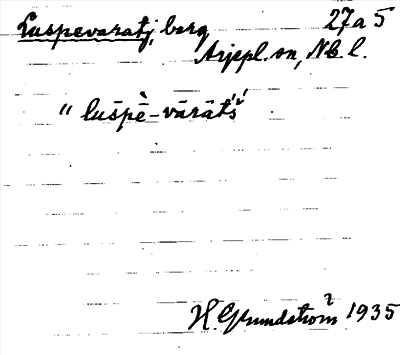 Luspevaratj, berg 27a5
Arjepl. sn, Nb. l.
" lušpḕ-vārāt́š́
H. Grundström 1935